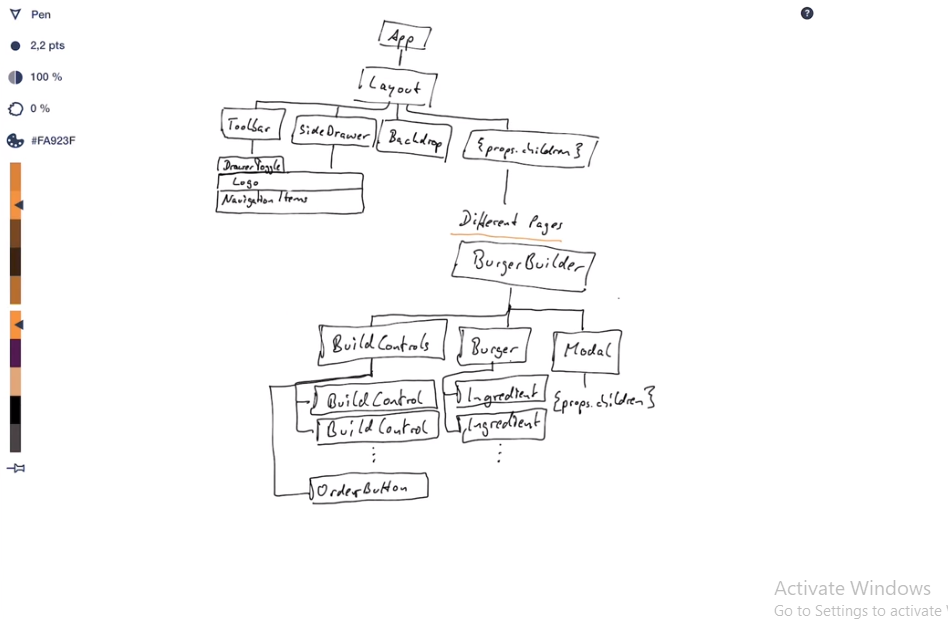 Pen
?
2,2 pts
100 %
0 %
#FA923F
App
Layout
Toolbar
SideDrawer
Backdrop
{props.children}
DrawerToggle
Logo
Navigation Items
Different Pages
BurgerBuilder
BuildControls
Burger
Modal
BuildControl
Ingredient
{props.children}
BuildControl
Ingredient
OrderButton
Activate Windows
Go to Settings to activate